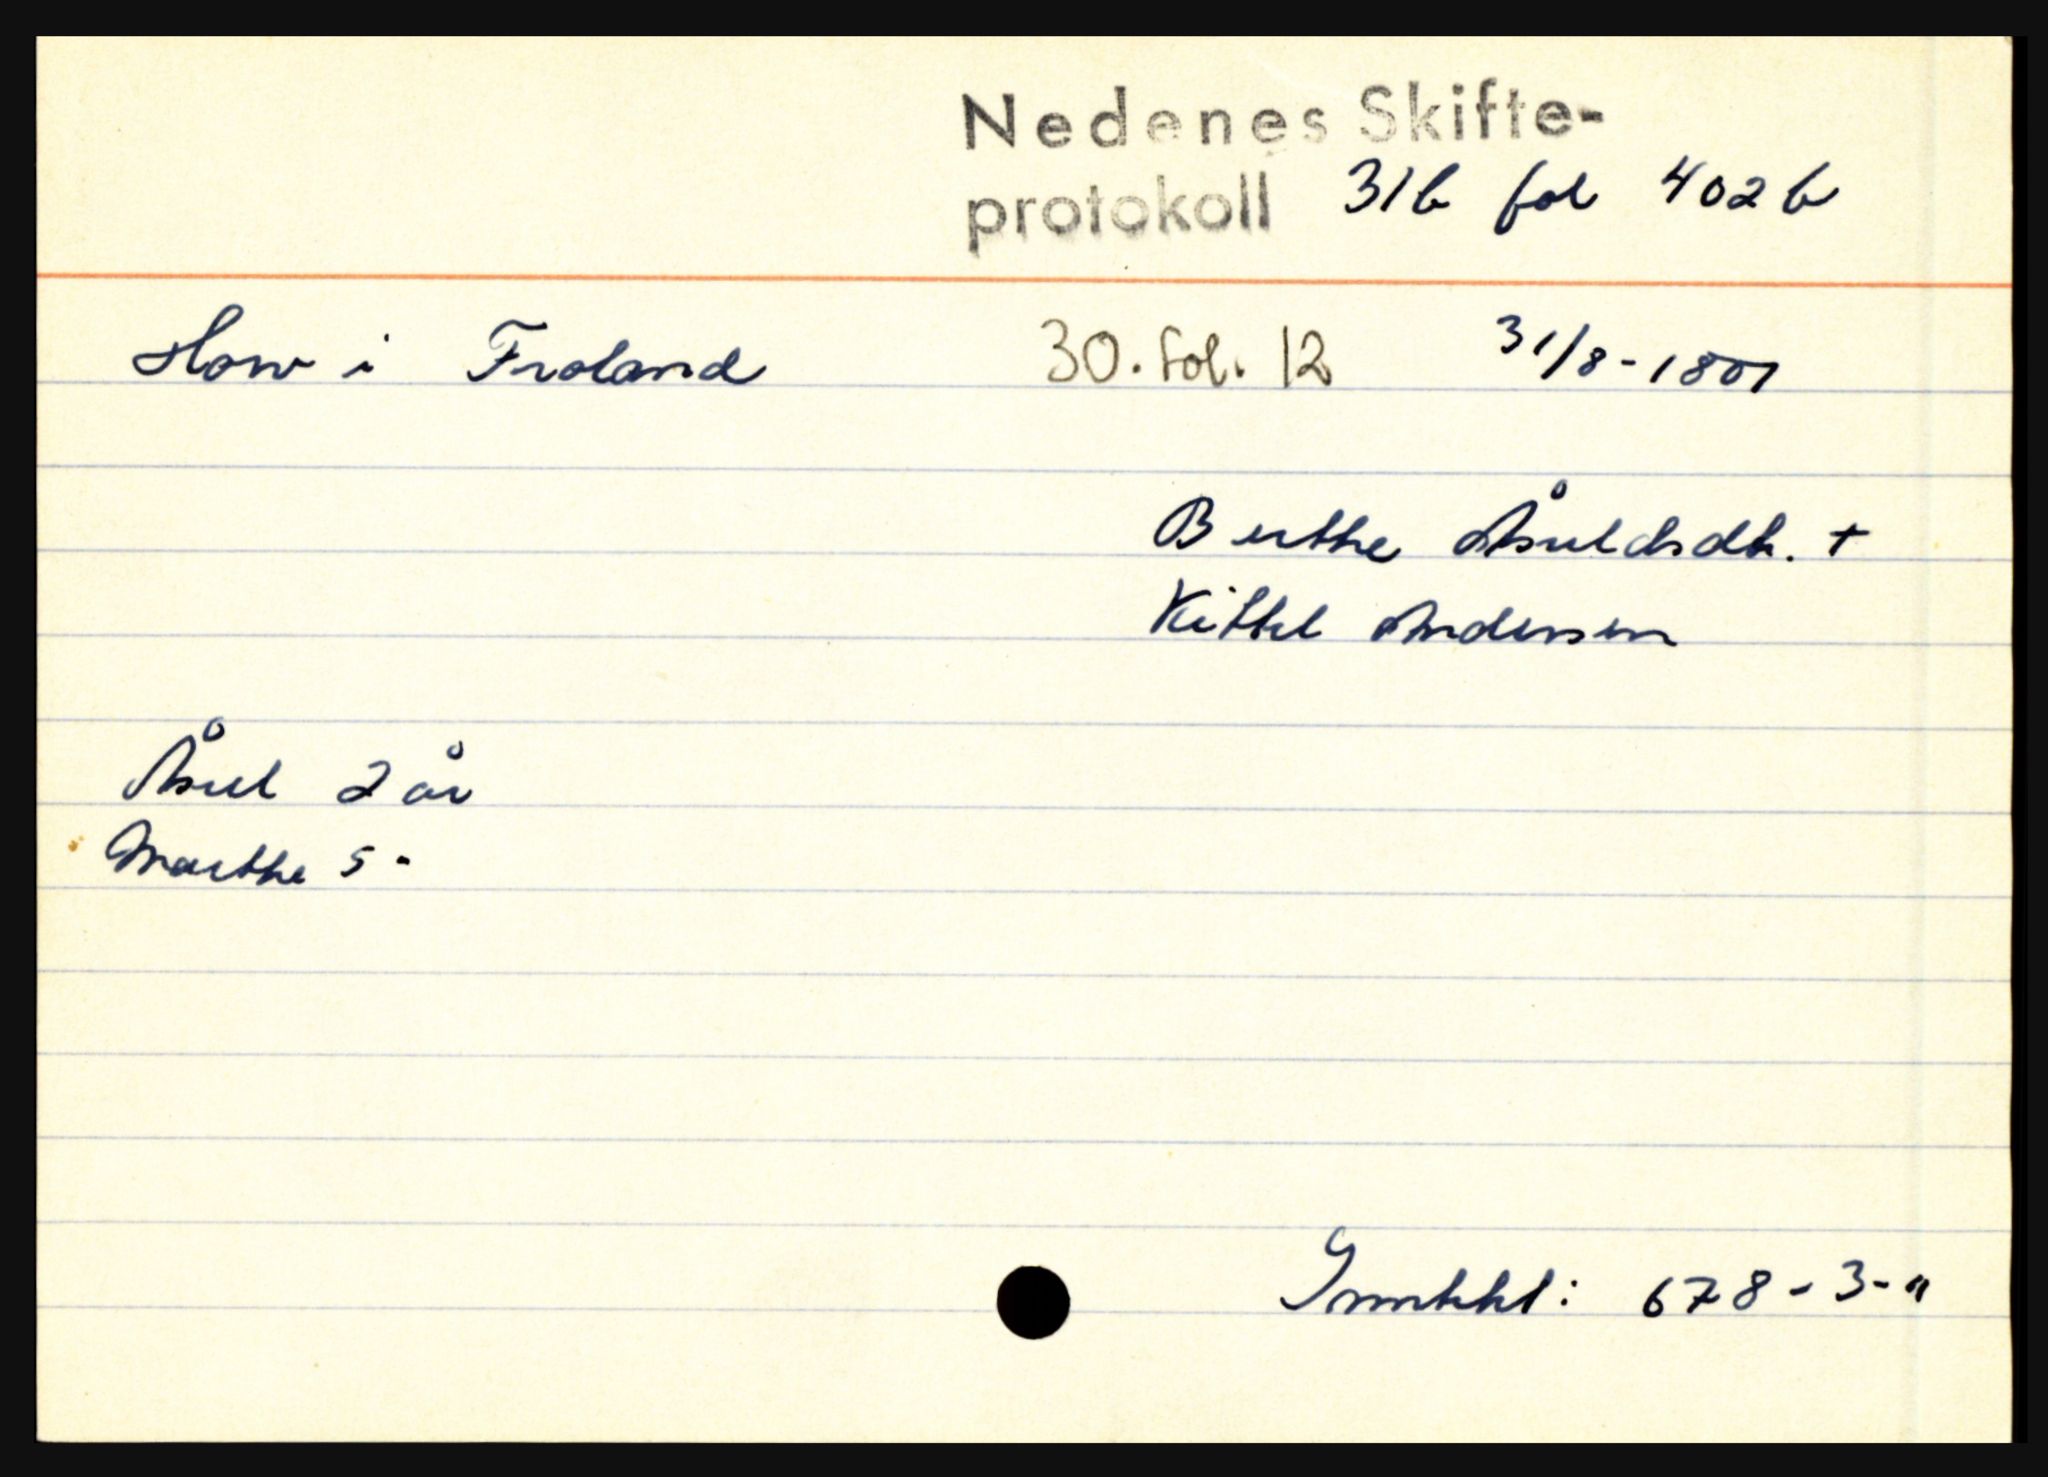 Nedenes Skifte-
protokoll 31b fol 402b
How i Froland 30. fol. 12 31/8-1801
Berthe Åsuldsdtr. +
Kittel Andersen
Åsul 2 år
Marthe 5 -
678-3-"